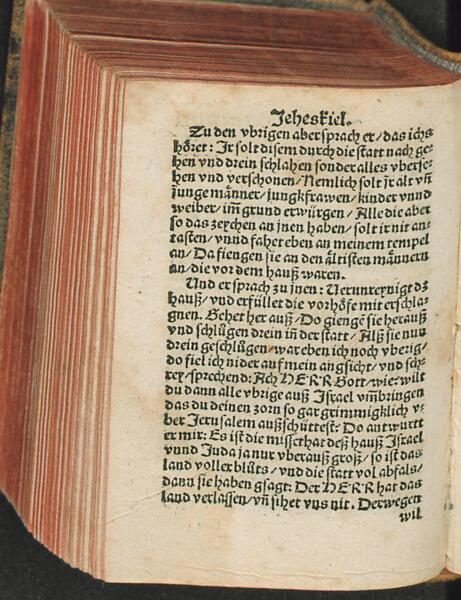 Jeheskiel.
Zu den vbrigen aber sprach er/das ichs
höret: Jr solt disem durch die statt nach ge-
hen vnd drein schlahen sonder alles vberse-
hen vnd verschonen/Nemlich solt jr alt vñ
junge männer/jungkfrawen/kinder vnnd
weiber/im̃ grund erwürgen/Alle die aber
so das zeychen an jnen haben/solt ir nit an-
tasten/vnnd fahet eben an meinem tempel
an/Da fiengen sie an den ältisten männern
an/die vor dem hauß waren.
Vnd er sprach zu jnen: Verunreynigt dz
hauß/vnd erfüllet die vorhöfe mit erschla-
gnen. Gehet her auß/Do giengẽ sie herauß
vnd schlůgen drein iñ der statt/Alß sie nun
drein geschlůgen/war eben ich noch vberig/
do fiel ich nider auf mein angsicht/vnd sch-
rey/sprechend: Ach HERR Gott/wie: wilt
du dann alle vbrige auß Israel vm̃bringen
das du deinen zorn so gar grimmigklich v-
ber Jerusalem außschüttest? Do antwurtt
er mir: Es ist die missethat deß hauß Israel
vnnd Juda ja nur vberauß groß/so ist das
land voller blůts/vnd die statt vol abfals/
dann sie haben gsagt: Der HERR hat das
land verlassen/vñ sihet vns nit. Derwegen
wil